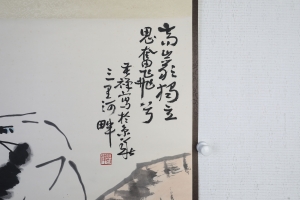 高岩獨立
思奮飛兮
寫於京華
三里河畔